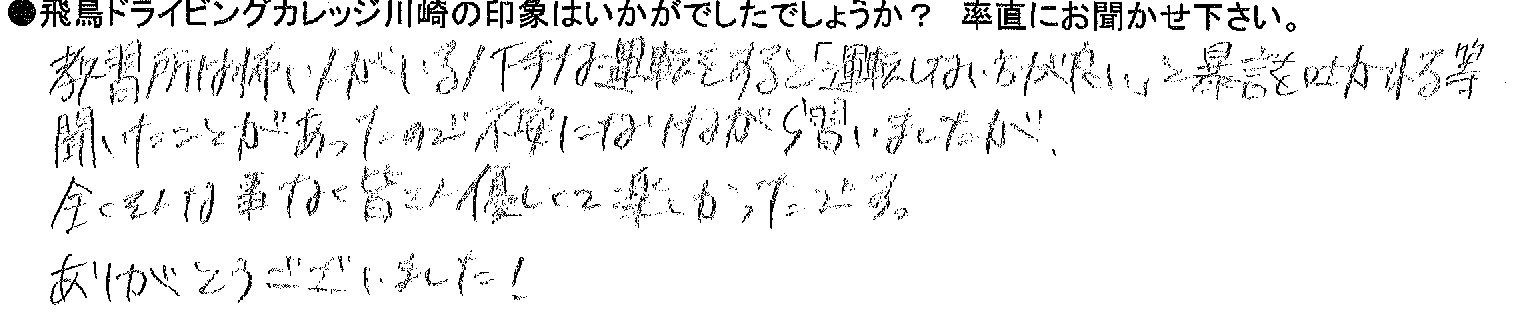 ●飛鳥ドライビングカレッジ川崎の印象はいかがでしたでしょうか? 率直にお聞かせ下さい。
教習所は怖い人がいる/下手な運転をすると「運転しない方が良い」と暴言を吐かれる等
聞いたことがあったので不安になりながら習いましたが、
全くそんな事なく皆さん優しくて楽しかったです。
ありがとうございました!